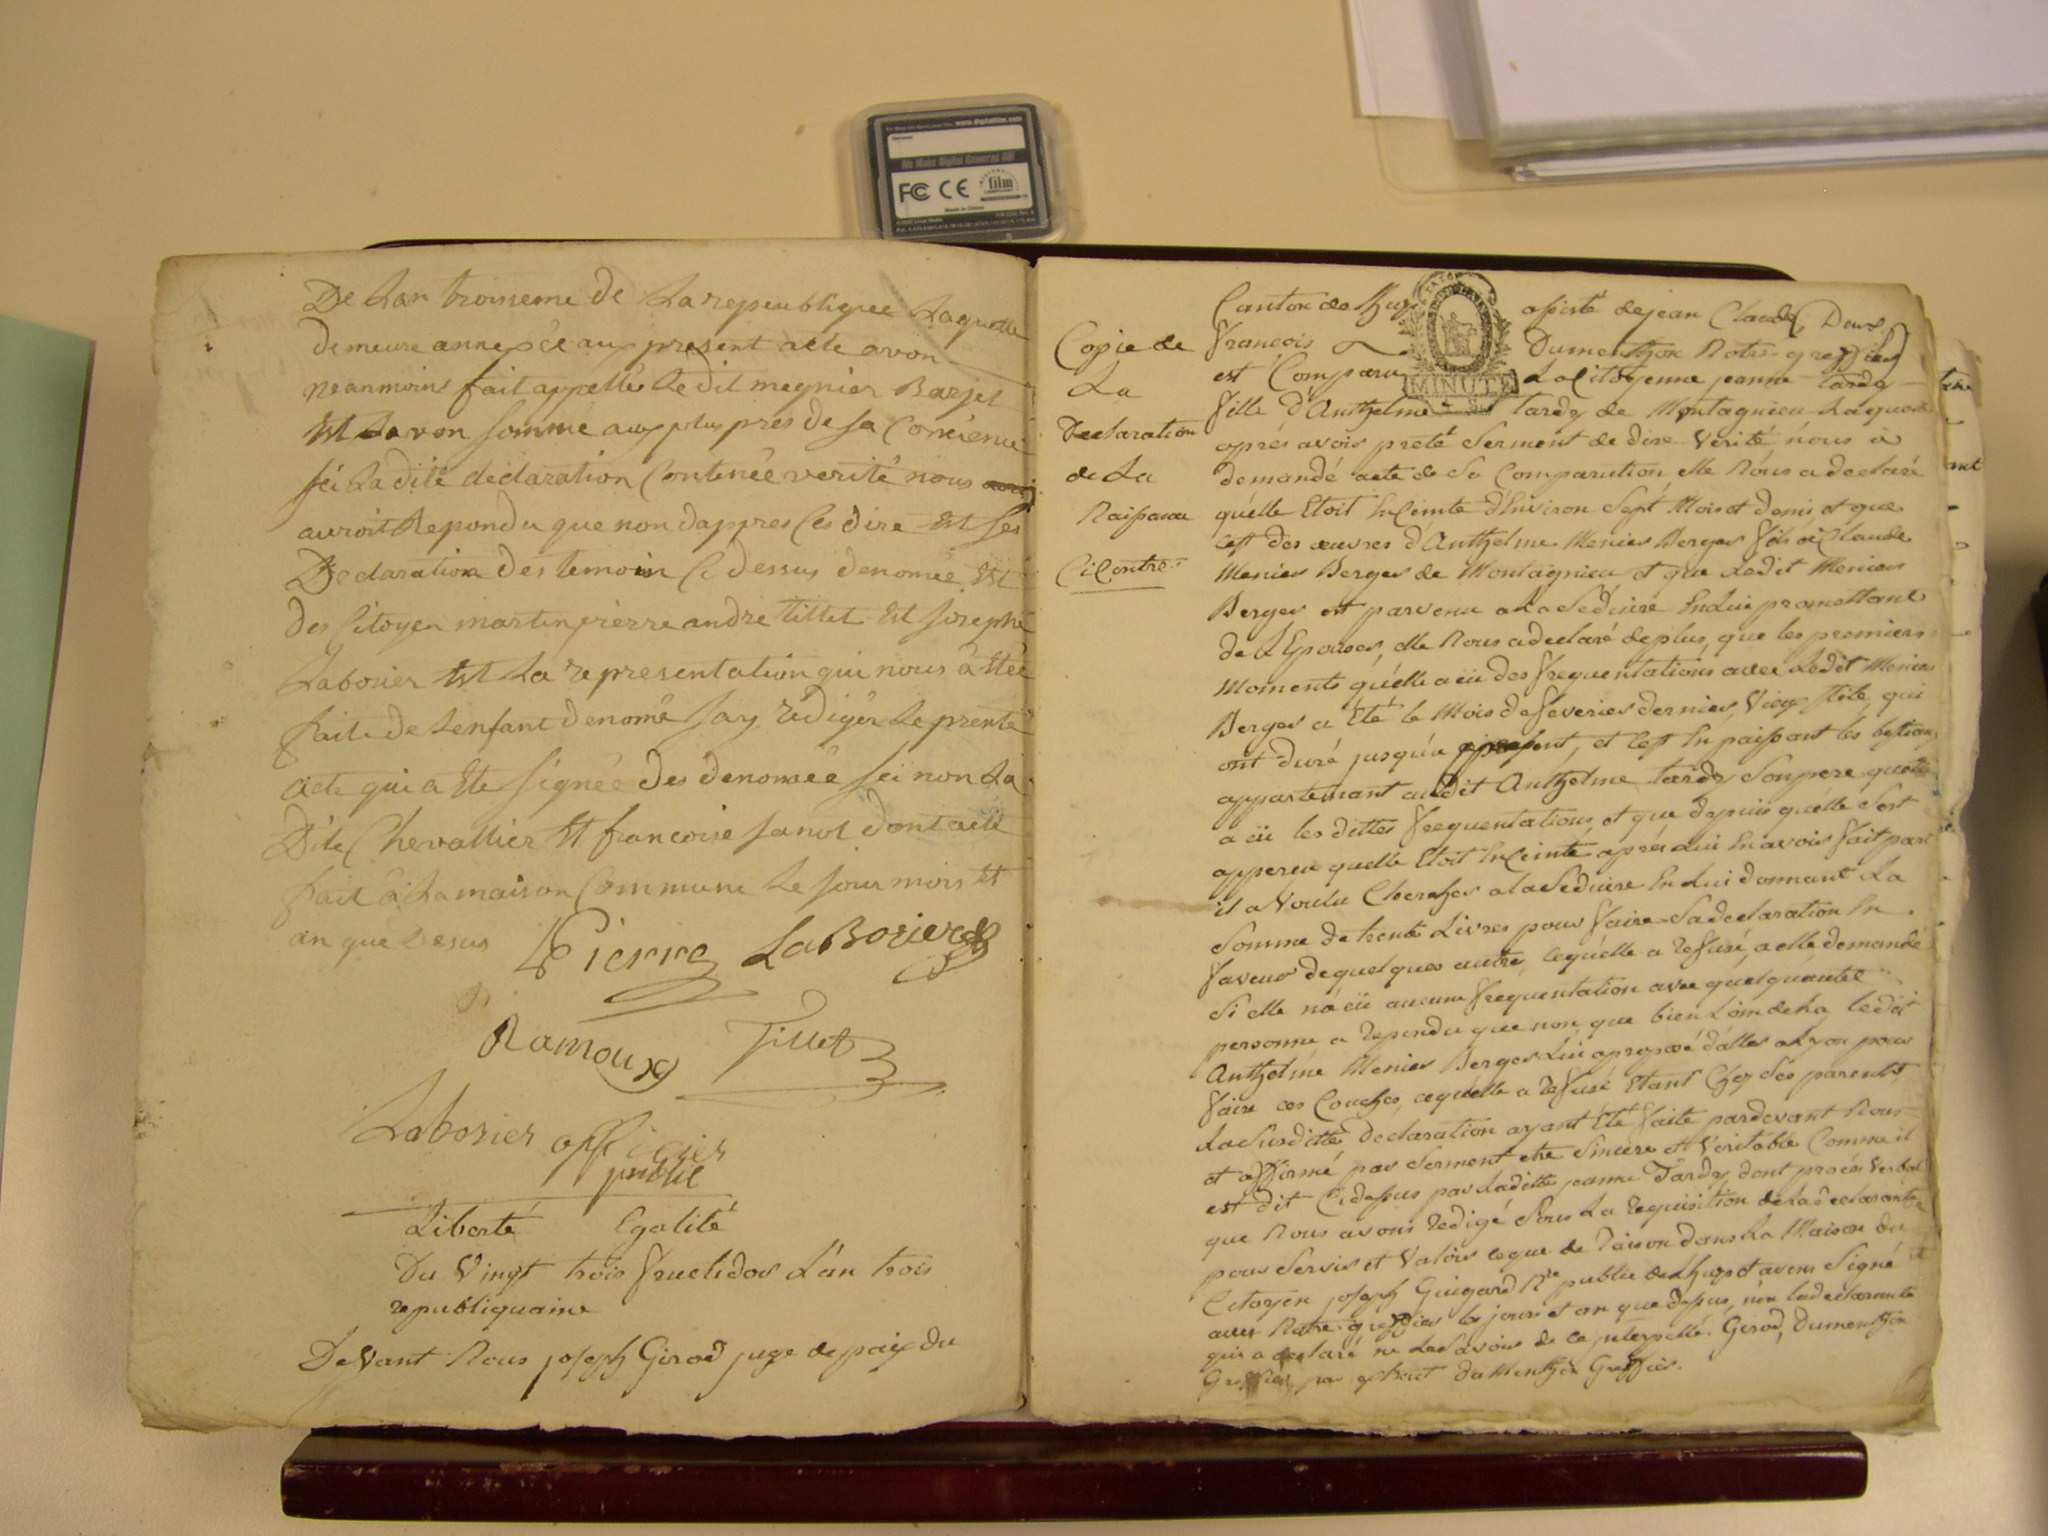 www.digitalfilm.com
We Make Digital Count!
FC CE film
Made in China
De Lan troisieme de La repeublique Laquelle
demeure annexée aux present acte avon
neanmoins fait appellée Ledit megnier Barjet
Et Lavon somme aux plus pres de sa Concience
sei Ladite declaration Contenée verité nous
auroit Repondu que non dappres Ces dire Et Les
Declaration des temoin Ci dessus denomée Est
des Citoyen martin pierre andre tillet Et Joseph
Laborier Et La representation qui nous à Etée
faite de Lenfant denomé Jay rédigér Le presente
acte qui a Ete signée des denomée sei non La
Dite Chevallier Et francoise Janot dont acte
fait à La maison Commune Le jour mois Et
an que Desus Pierre LaBorier
Ramoux Tillet
Laborier officier
public
Liberté Egalité
Du Vingt trois fructidor L'an trois
republiquaine
Devant Nous joseph Girod juge de paix du
Copie de
La
Declaration
de La
Naissance
Ci Contre
MINUTE
Canton de Lhuis assisté de jean Claude
francois Dumenthon Notre greffier
est Comparue La Citoyenne jeanne tardy
fille d'Anthelme tardy de Montagnieu Laquelle
aprés avoir preté Serment de dire Verité nous à
demandé acte de Sa Comparution elle Nous a declaré
qu'elle Etoit Enceinte d'Environ Sept Mois et demi et que
cest des œuvres d'Anthelme Menier Berger fils de Claude
Menier Berger de Montagnieu et que Ledit Menier
Berger est parvenu a La Seduire En Lui promettant
de L'Epouser, elle Nous a declaré de plus, que les premiers
Moments qu'elle a eü des frequentations avec Ledit Menier
Berger a Eté le Mois de feverier dernier, Vieux stile, qui
ont duré jusqu'a apresent, et cest En paissant les bestiaux
appartenant audit Anthelme tardy Son pere quelle
a eü les dittes frequentations et que depuis qu'elle Sest
apperçu quelle Etoit Enceinte aprés Lui En avoir fait part
il a Voulu Chercher a la Seduire En Lui donnant La
Somme de trente Livres pour faire Sa declaration En
faveur de quelques autre, cequ'elle a refusé, a elle demandé
Si elle n'a eü aucune frequentation avec quelqu'autre
personne a repondu que non que bien Loin de La ledit
Anthelme Menier Berger Lui a proposé d'aller a Lyon pour
faire ses Couches, cequ'elle a refusé Etant Chez Ses parents,
La Susditte Declaration ayant Eté faite pardevant Nous
et affirmé par Serment etre Sincere et Veritable Comme il
est dit Cidessus par Laditte jeanne Tardy, dont procés Verbal
que Nous avons redigé Sous La requisition de La declarante
pour Servir et Valoir ceque de raison dans La Maison du
Citoyen joseph Guigard Nre public de Lhuis et avons Signé
avec Notre greffier les jour et an que dessus, non la declarante
qui a declaré ne Le Savoir de ce interpellé. Girod, Dumenthon
Greffier, par extrait Dumenthon Greffier.